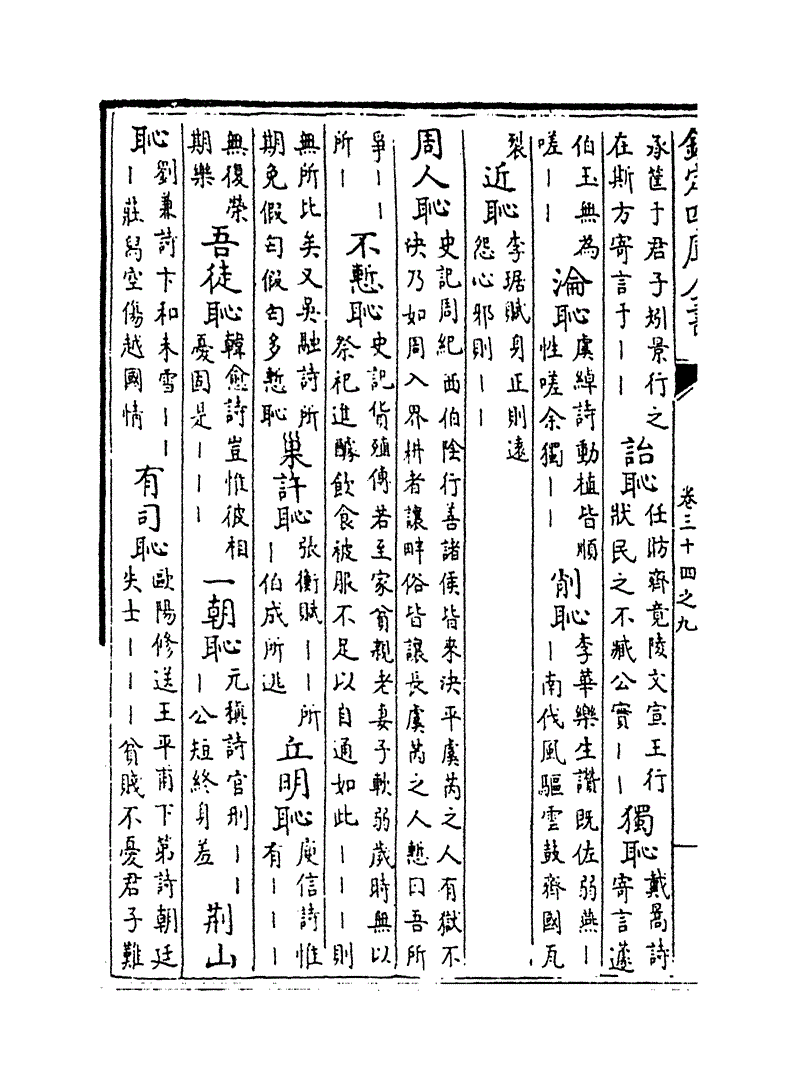 欽定四庫全書
卷三十四之九
承筐于君子矧景行之
在斯方寄言于丨丨
詒恥
任昉齊竟陵文宣王行
狀民之不臧公實丨丨
獨恥
戴暠詩
寄言蘧
伯玉無為
嗟丨丨
淪恥
虞綽詩動植皆順
性嗟余獨丨丨
削恥
李華樂生讚既佐弱燕丨
丨南伐風驅雲鼓齊國瓦
裂
近恥
李琚賦身正則遠
怨心邪則丨丨
周人恥
史記周紀西伯陰行善諸侯皆來決平虞芮之人有獄不
決乃如周入界耕者讓畔俗皆讓長虞芮之人慙曰吾所
爭丨丨
所丨
不慙恥
史記貨殖傳若至家貧親老妻子軟弱歲時無以
祭祀進醵飲食被服不足以自通如此丨丨丨則
無所比矣又吳融詩所
期免假匄假匄多慙恥
巢許恥
張衡賦丨丨所
丨伯成所逃
丘明恥
庾信詩惟
有丨丨丨
無復榮
期樂
吾徒恥
韓愈詩豈惟彼相
憂固是丨丨丨
一朝恥
元稹詩官刑丨丨
丨公短終身羞
荆山
恥
劉兼詩卞和未雪丨丨
丨莊舄空傷越國情
有司恥
歐陽修送王平甫下第詩朝廷
失士丨丨丨貧賤不憂君子難